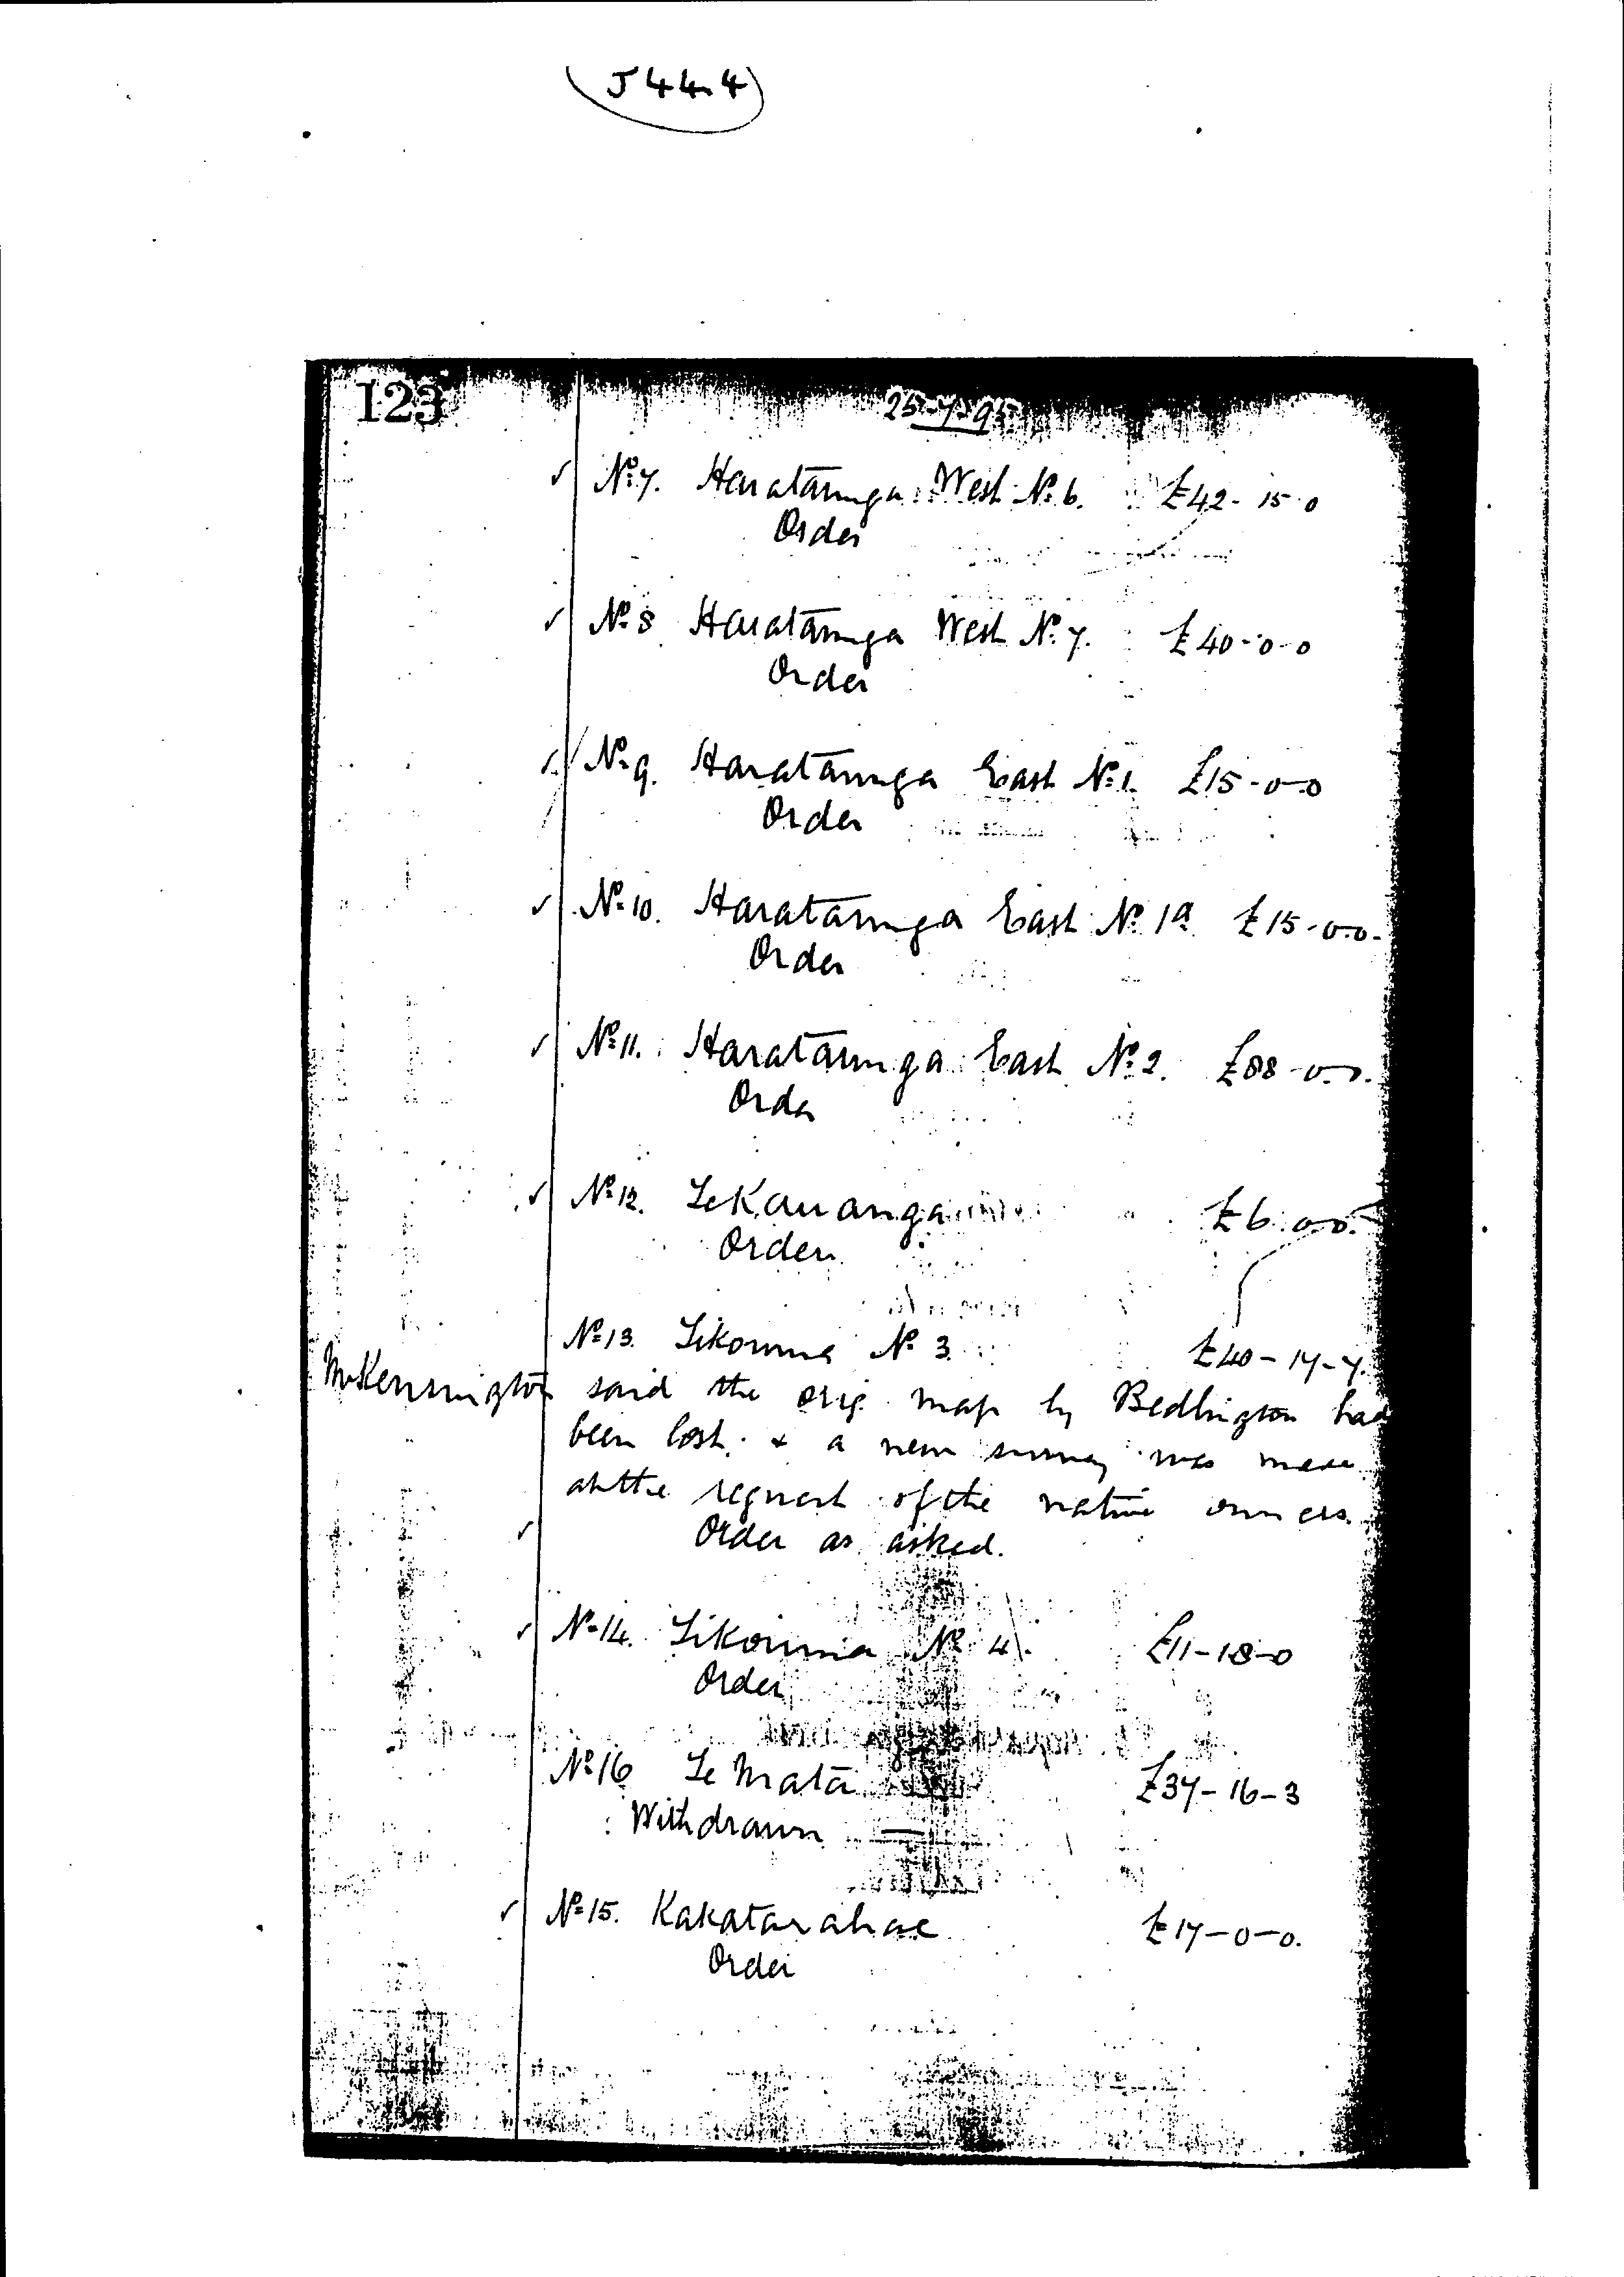 J 44.4
123
25-7-95
✓ No 7. Harataunga West No 6. £42-15-0
Order
✓ No 8 Harataunga West No 7. £40-0-0
Order
✓ No 9. Harataunga East No 1. £15-0-0
Order
✓ No 10. Harataunga East No 1a £15-0-0.
Order
✓ No 11. Harataunga East No 2. £88-0-0.
Order
✓ No 12. Te Kauanga £6.0.0.
Order
No 13. Tikouma No 3. £40-17-7.
Mr Kennington said the orig. map by Bedlington had
been lost. & a new survey was made
at the request of the native owners.
✓ Order as asked.
✓ No 14. Tikouma No 4. £11-18-0
Order
No 16 Te Mata £37-16-3
Withdrawn
✓ No 15. Kakatarahae £17-0-0.
Order